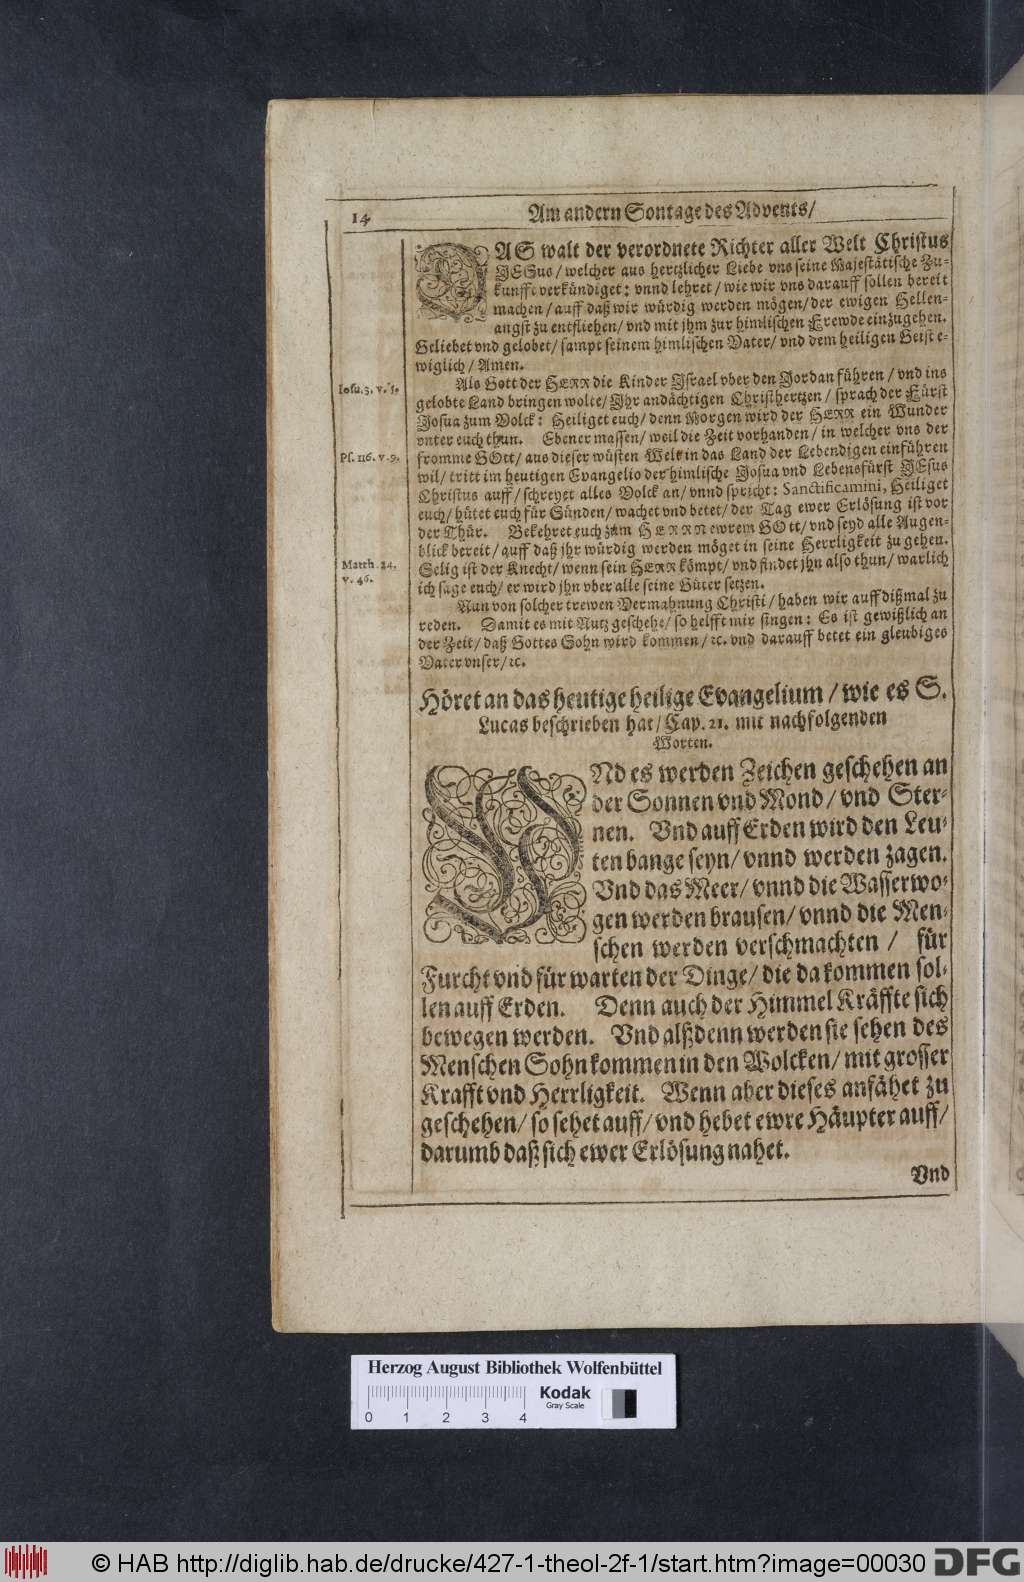 14
Am andern Sontage des Advents/
DAS walt der verordnete Richter aller Welt Christus
JESus/ welcher aus hertzlicher Liebe vns seine Majestätische Zu-
kunfft verkündiget: vnnd lehret/ wie wir vns darauff sollen bereit
machen/ auff daß wir würdig werden mögen/ der ewigen Hellen-
angst zu entfliehen/ vnd mit jhm zur himlischen Frewde einzugehen.
Geliebet vnd gelobet/ sampt seinem himlischen Vater/ vnd dem heiligen Geist e-
wiglich/ Amen.
Als Gott der HERR die Kinder Jsrael vber den Jordan führen/ vnd ins
Iosu. 3. v. 5.
gelobte Land bringen wolte/ Jhr andächtigen Christhertzen/ sprach der Fürst
Josua zum Volck: Heiliget euch/ denn Morgen wird der HERR ein Wunder
vnter euch thun. Ebener massen/ weil die Zeit vorhanden/ in welcher vns der
Ps. 116. v. 9.
fromme GOtt/ aus dieser wüsten Welt in das Land der Lebendigen einführen
wil/ tritt im heutigen Evangelio der himlische Josua vnd Lebensfürst JEsus
Christus auff/ schreyet alles Volck an/ vnnd spricht: Sanctificamini, Heiliget
euch/ hütet euch für Sünden/ wachet vnd betet/ der Tag ewer Erlösung ist vor
der Thür. Bekehret euch zum HERRN ewrem GOtt/ vnd seyd alle Augen-
blick bereit/ auff daß jhr würdig werden möget in seine Herrligkeit zu gehen.
Matth. 24.
v. 46.
Selig ist der Knecht/ wenn sein HERR kömpt/ vnd findet jhn also thun/ warlich
ich sage euch/ er wird jhn vber alle seine Güter setzen.
Nun von solcher trewen Vermahnung Christi/ haben wir auff dißmal zu
reden. Damit es mit Nutz geschehe/ so helfft mir singen: Es ist gewißlich an
der Zeit/ daß Gottes Sohn wird kommen/ ꝛc. vnd darauff betet ein gleubiges
Vater vnser/ ꝛc.
Höret an das heutige heilige Evangelium/ wie es S.
Lucas beschrieben hat/ Cap. 21. mit nachfolgenden
Worten.
VNd es werden Zeichen geschehen an
der Sonnen vnd Mond/ vnd Ster-
nen. Vnd auff Erden wird den Leu-
ten bange seyn/ vnnd werden zagen.
Vnd das Meer/ vnnd die Wasserwo-
gen werden brausen/ vnnd die Men-
schen werden verschmachten/ für
Furcht vnd für warten der Dinge/ die da kommen sol-
len auff Erden. Denn auch der Himmel Kräffte sich
bewegen werden. Vnd alßdenn werden sie sehen des
Menschen Sohn kommen in den Wolcken/ mit grosser
Krafft vnd Herrligkeit. Wenn aber dieses anfähet zu
geschehen/ so sehet auff/ vnd hebet ewre Häupter auff/
darumb daß sich ewer Erlösung nahet.
Vnd
Herzog August Bibliothek Wolfenbüttel
Kodak
Gray Scale
0 1 2 3 4
© HAB http://diglib.hab.de/drucke/427-1-theol-2f-1/start.htm?image=00030
DFG